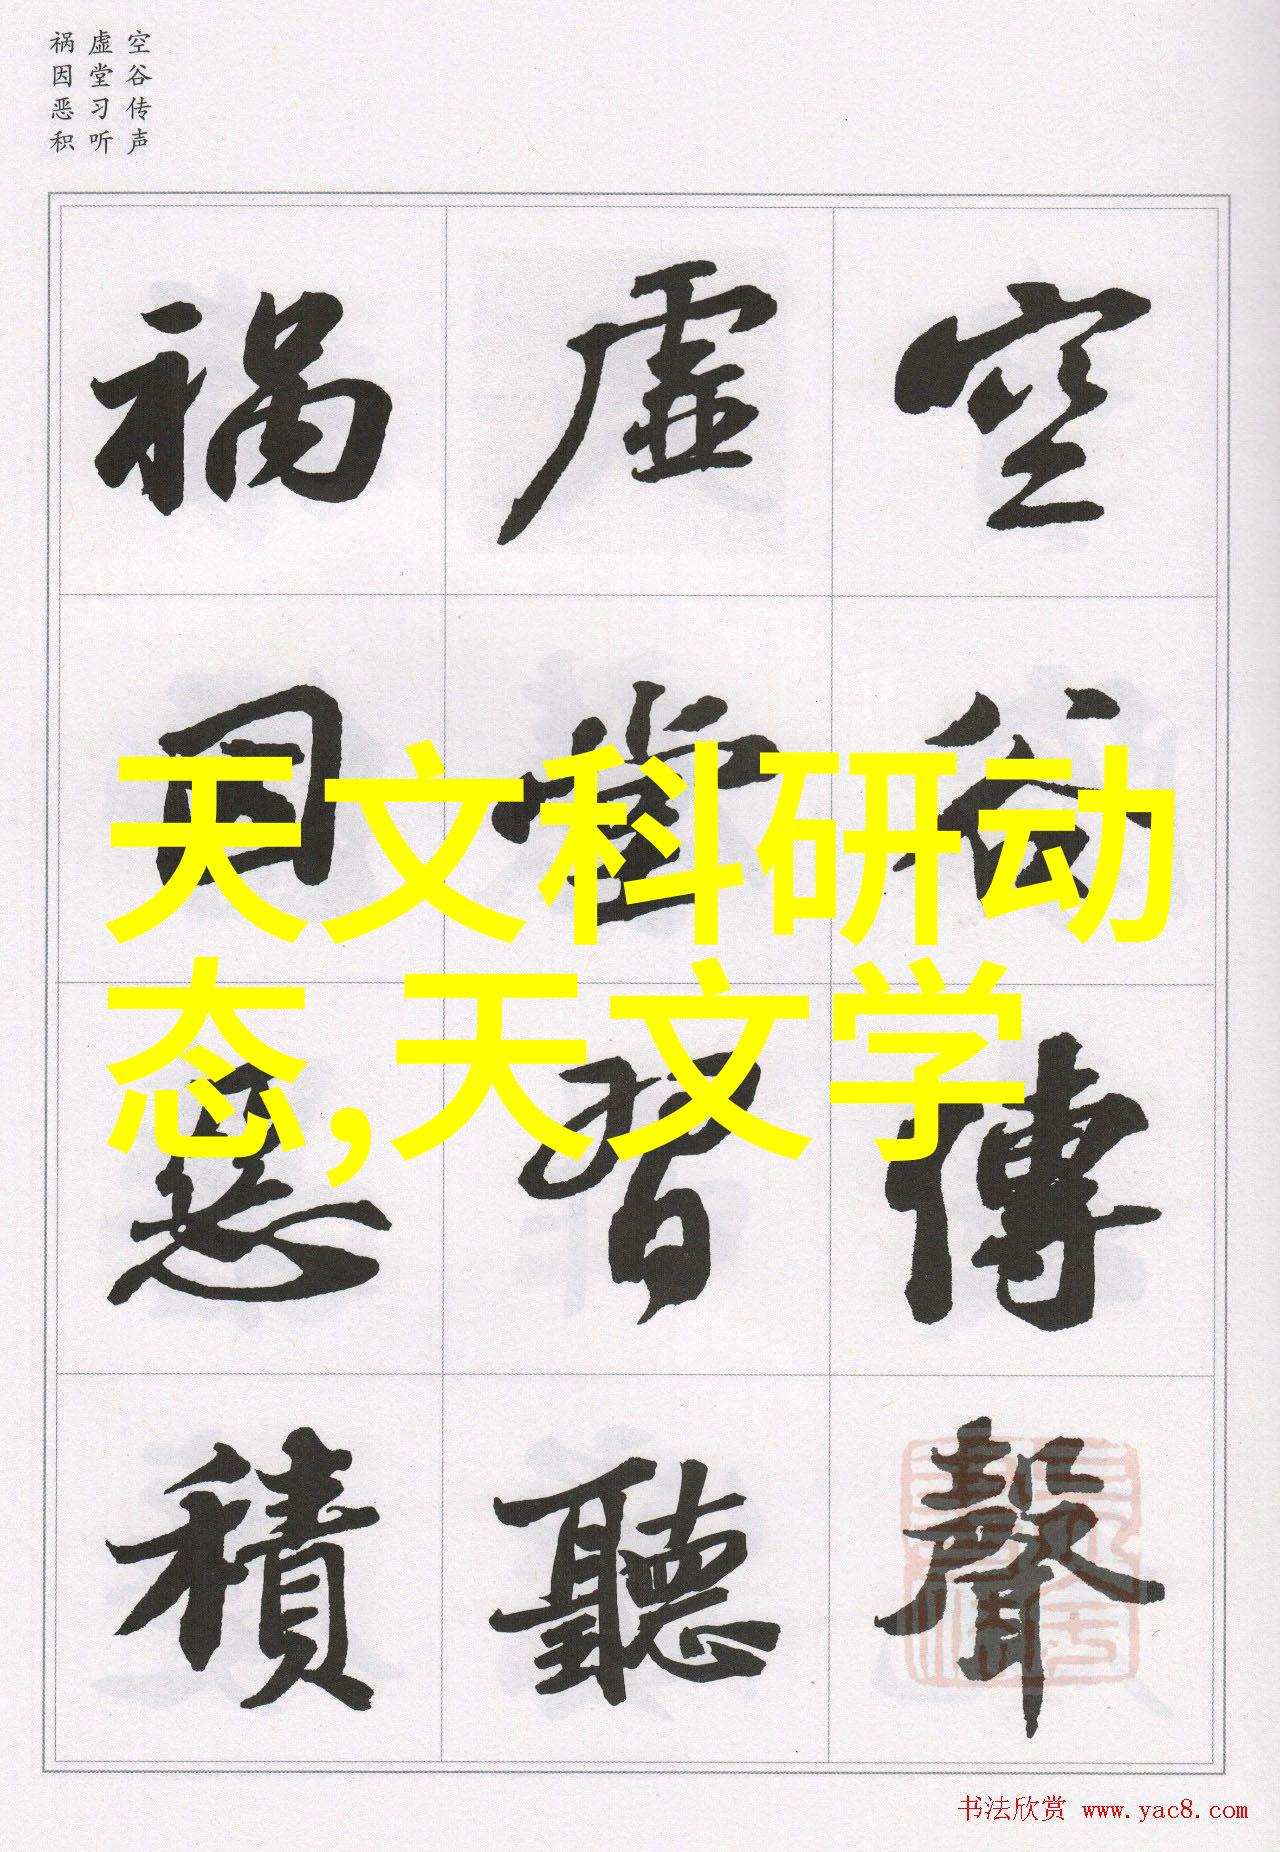 空谷传声
虚堂习听
祸因恶积
空谷傳聲
虛堂習聽
禍因惡積
天文科研动
态,天文学
书法欣赏 www.yac8.com